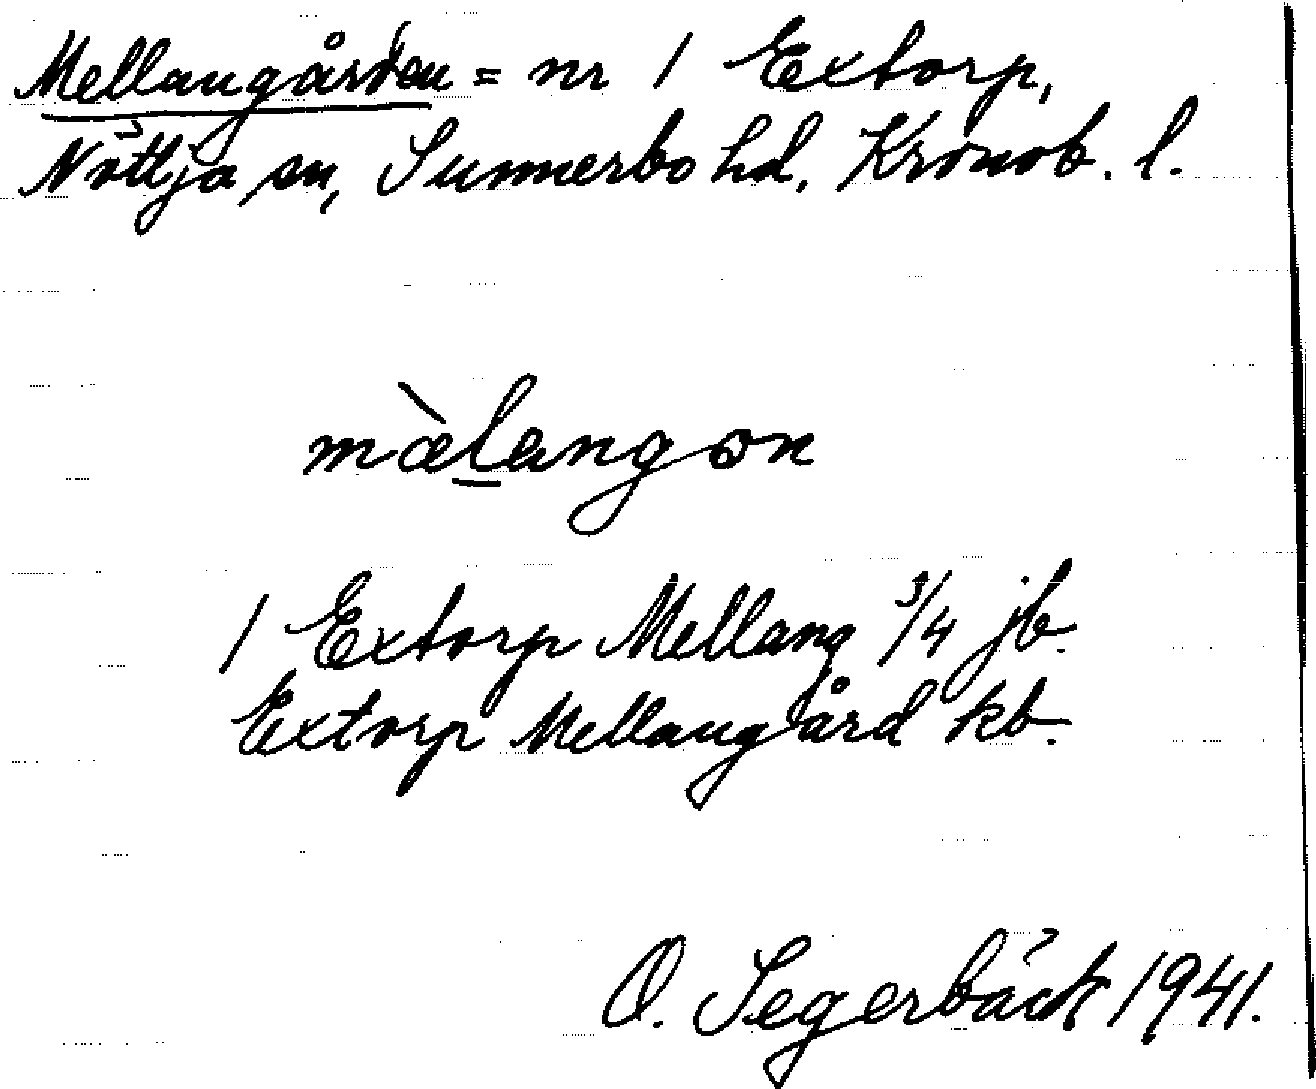 Mellangården = nr 1 Extorp,
Nöttja sn, Sunnerbo hd. Kronob. l.
mæ̀langɔn
1 Extorp Mellang 3/4 jb.
Extorp Mellangård kb.
O. Segerbäck 1941.